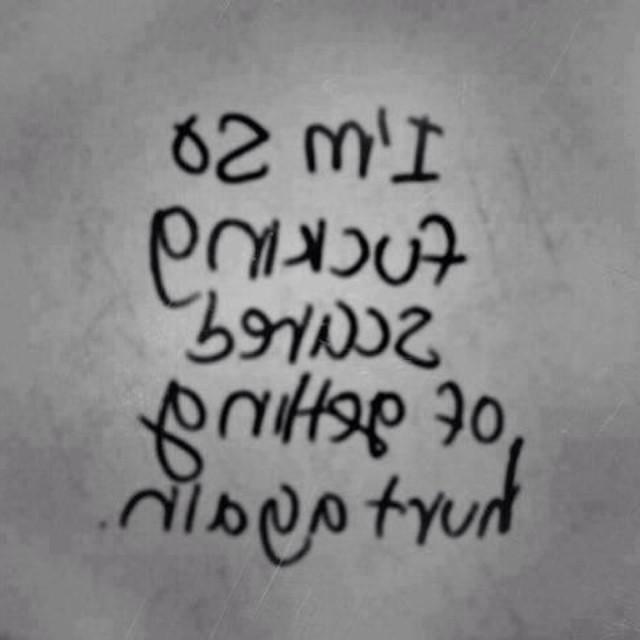 I'm so
fucking
scared
of getting
hurt again.